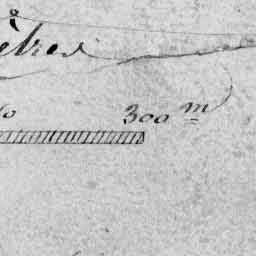 ètres
0 300 m